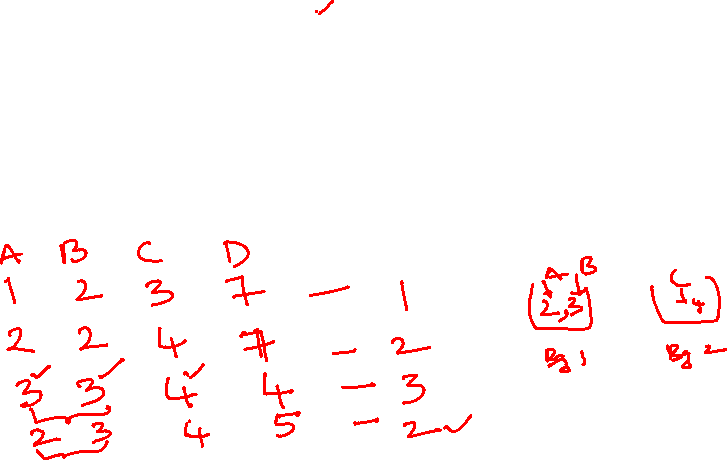 A B C D
1 2 3 7 — 1
2 2 4 7 — 2
3 3 4 4 — 3
2 3 4 5 — 2
A B
2, 3
Bg 1
C
4
Bg 2